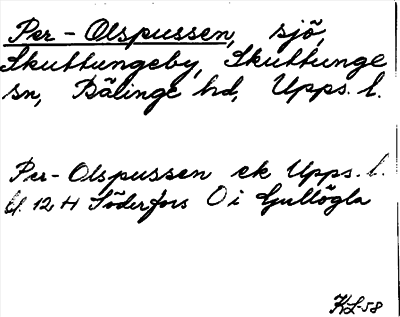 Per-Olspussen, sjö,
Skuttungeby, Skuttunge
sn, Bälinge hd, Upps. l.
Per-Olspussen ek Upps. l.
bl. 12 H Söderfors O i Gullögla
KL-58